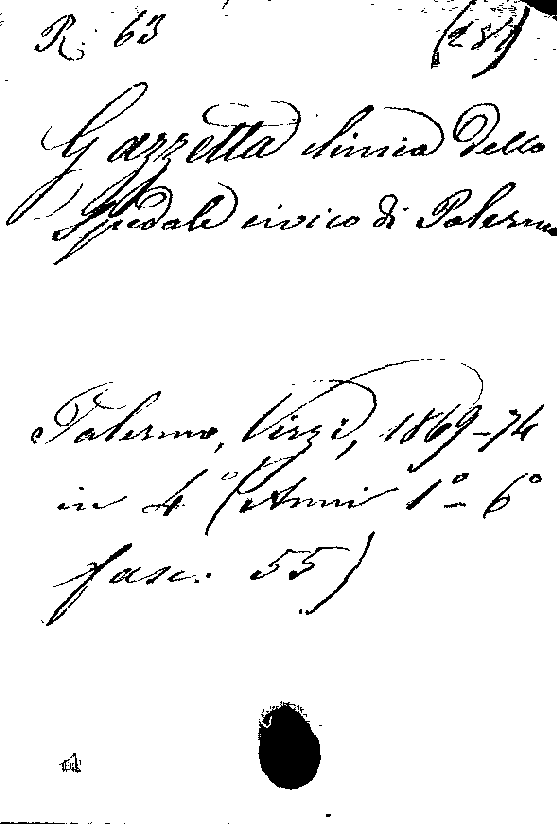 R. 63 (289)
Gazzetta clinica dello
Spedale civico di Palermo
Palermo, Virzì, 1869-74
in 4° (Anni 1°-6°
fasc. 55)